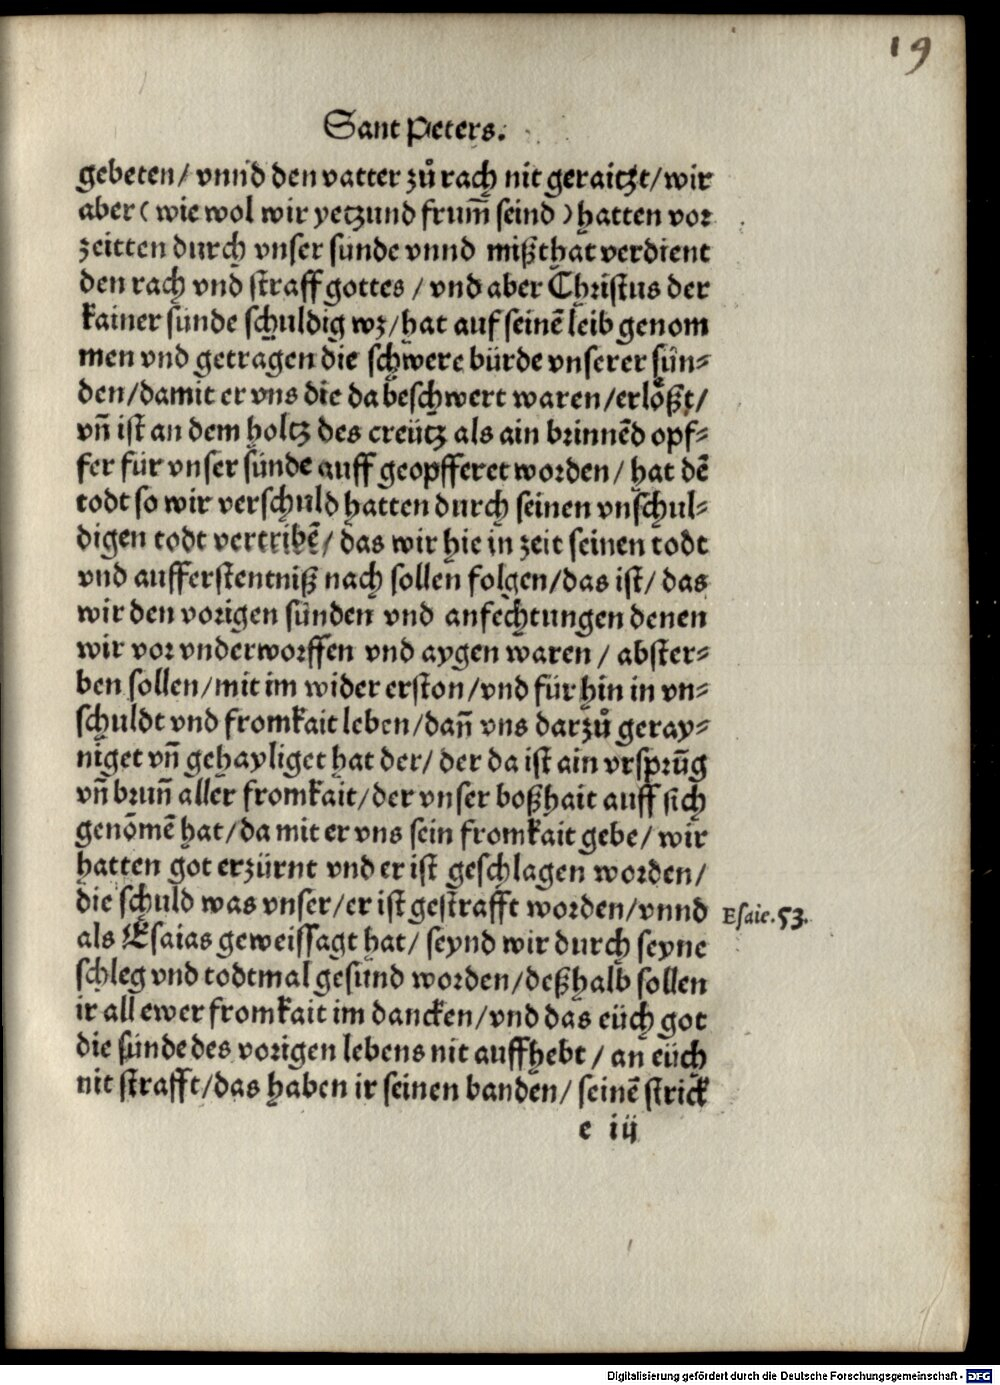 19
Sant Peters.
gebeten/ vnnd den vatter zů rach nit geraitzt/ wir
aber ( wie wol wir yetzund frum̄ seind ) hatten vor
zeitten durch vnser sünde vnnd mißthat verdient
den rach vnd straff gottes / vnd aber Christus der
kainer sünde schuldig wz/ hat auf seinē leib genom
men vnd getragen die schwere bürde vnserer sün⸗
den/damit er vns die da beschwert waren/erlößt/
vn̄ ist an dem holtz des creütz als ain brinnēd opf⸗
fer für vnser sünde auff geopfferet worden/ hat dē
todt so wir verschuld hatten durch seinen vnschul⸗
digen todt vertribē/ das wir hie in zeit seinen todt
vnd aufferstentniß nach sollen folgen/das ist/ das
wir den vorigen sünden vnd anfechtungen denen
wir vor vnderworffen vnd aygen waren / abster⸗
ben sollen/mit im wider erston/vnd für hin in vn⸗
schuldt vnd fromkait leben/dan̄ vns darzů geray⸗
niget vn̄ gehayliget hat der/ der da ist ain vrsprūg
vn̄ brun̄ aller fromkait/der vnser boßhait auff sich
genōmē hat/da mit er vns sein fromkait gebe/ wir
hatten got erzürnt vnd er ist geschlagen worden/
die schuld was vnser/er ist gestrafft worden/vnnd
Esaie.53.
als Esaias geweissagt hat/ seynd wir durch seyne
schleg vnd todtmal gesund worden/deßhalb sollen
ir all ewer fromkait im dancken/vnd das eüch got
die sünde des vorigen lebens nit auffhebt / an eüch
nit strafft/das haben ir seinen banden/ seinē strick
e iij
Digitalisierung gefördert durch die Deutsche Forschungsgemeinschaft - DFG